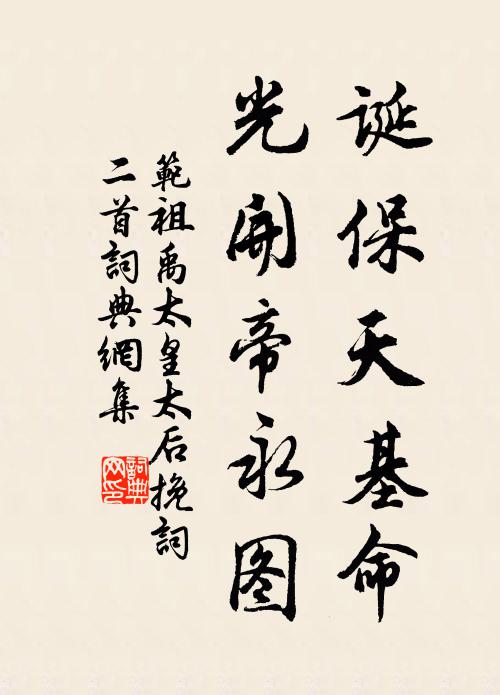 誕保天基命
光開帝永图
範祖禹太皇太后挽詞
二首詞典網集
詞典
网印